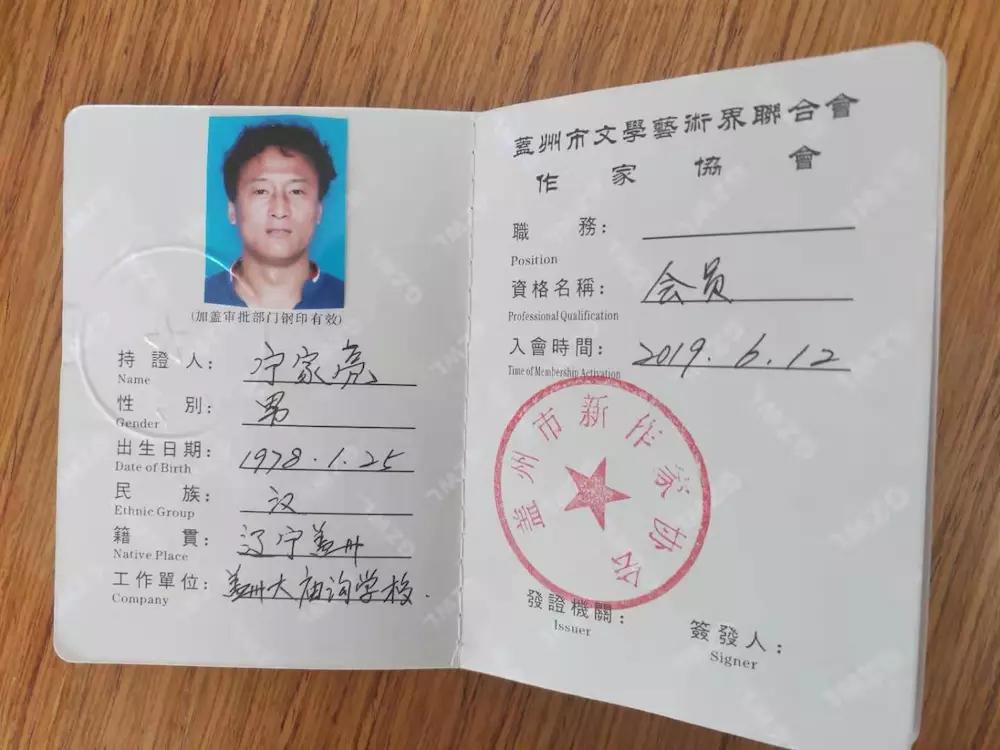 (加盖审批部门钢印有效)
持證人: 宁家亮
Name
性别: 男
Gender
出生日期: 1978.1.25
Date of Birth
民族: 汉
Ethnic Group
籍貫: 辽宁盖州
Native Place
工作單位: 盖州大庙沟学校.
Company
蓋州市文學藝術界聯合會
作家協會
職務:
Position
資格名稱: 会员
Professional Qualification
入會時間: 2019.6.12
Time of Membership Activation
盖州市新作家协会
發證機關:
Issuer
簽發人:
Signer